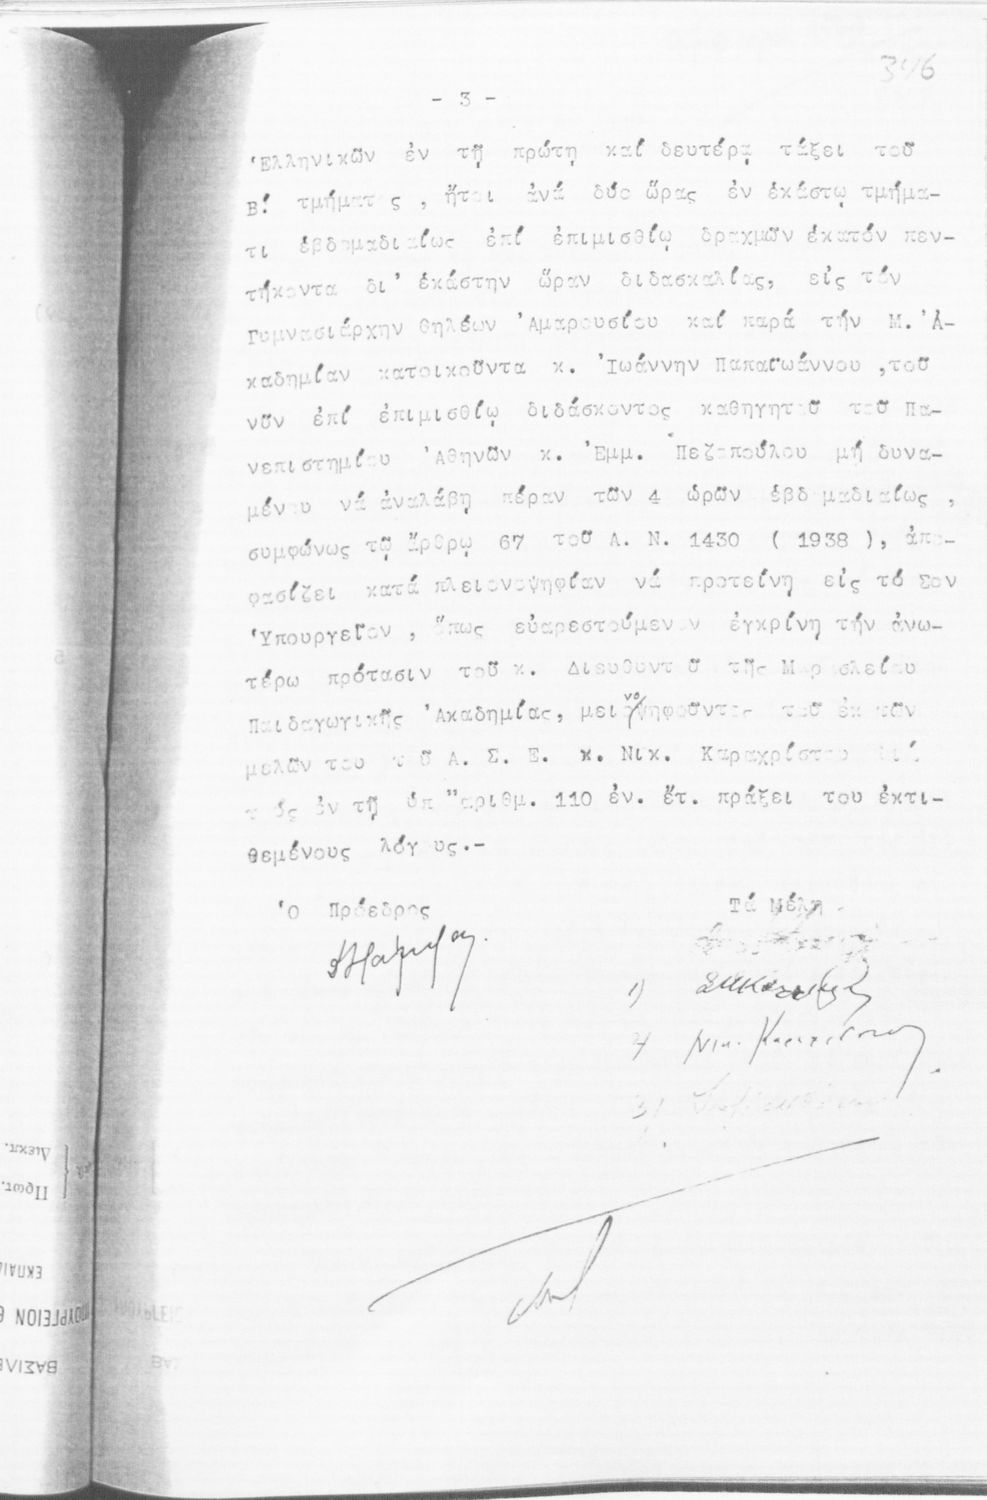 346
- 3 -
Ἑλληνικῶν ἐν τῇ πρώτῃ καί δευτέρᾳ τάξει τοῦ
Β! τμήματος , ἤτοι ἀνά δύο ὥρας ἐν ἑκάστῳ τμήμα-
τι ἑβδομαδιαίως ἐπί ἐπιμισθίῳ δραχμῶν ἑκατόν πεν-
τήκοντα δι' ἑκάστην ὥραν διδασκαλίας, εἰς τόν
Γυμνασιάρχην θηλέων Ἀμαρουσίου καί παρά τήν Μ. Ἀ-
καδημίαν κατοικοῦντα κ. Ἰωάννην Παπαϊωάννου ,τοῦ
νῦν ἐπί ἐπιμισθίῳ διδάσκοντος καθηγητοῦ τοῦ Πα-
νεπιστημίου Ἀθηνῶν κ. Ἐμμ. Πεζοπούλου μή δυνα-
μένου νά ἀναλάβῃ πέραν τῶν 4 ὡρῶν ἑβδομαδιαίως ,
συμφώνως τῷ ἄρθρῳ 67 τοῦ Α. Ν. 1430 ( 1938 ), ἀπο-
φασίζει κατά πλειονοψηφίαν νά προτείνῃ εἰς τό Σον
Ὑπουργεῖον , ὅπως εὐαρεστούμενον ἐγκρίνῃ τήν ἀνω-
τέρω πρότασιν τοῦ κ. Διευθυντοῦ τῆς Μαρασλείου
Παιδαγωγικῆς Ἀκαδημίας, μειονοψηφοῦντος τοῦ ἐκ τῶν
μελῶν του τοῦ Α. Σ. Ε. κ. Νικ. Καραχρίστου διά
τούς ἐν τῇ ὑπ "αριθμ. 110 ἐν. ἔτ. πράξει του ἐκτι-
θεμένους λόγους.-
Ὁ Πρόεδρος
Τά Μέλη
1)
2) Νικ.
3)
Διεκπ.
Πρωτ.